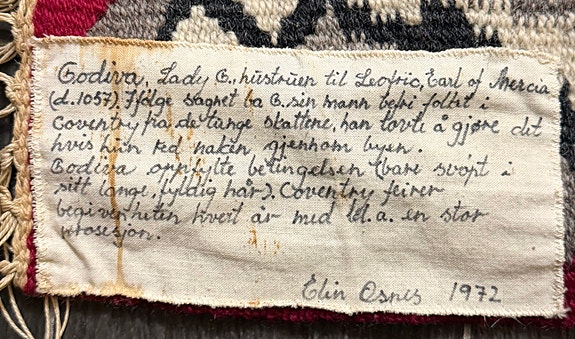 Godiva, Lady G., hustruen til Leofric, Earl of Mercia
(d. 1057). Ifølge sagnet ba G. sin mann befri folket i
Coventry fra de tunge skattene, han lovte å gjøre det
hvis hun red naken gjennom byen.
Godiva oppfylte betingelsen (bare svøpt i
sitt lange, fyldig hår). Coventry feirer
begivenheten hvert år med bl.a. en stor
prosesjon.
Elin Osnes 1972